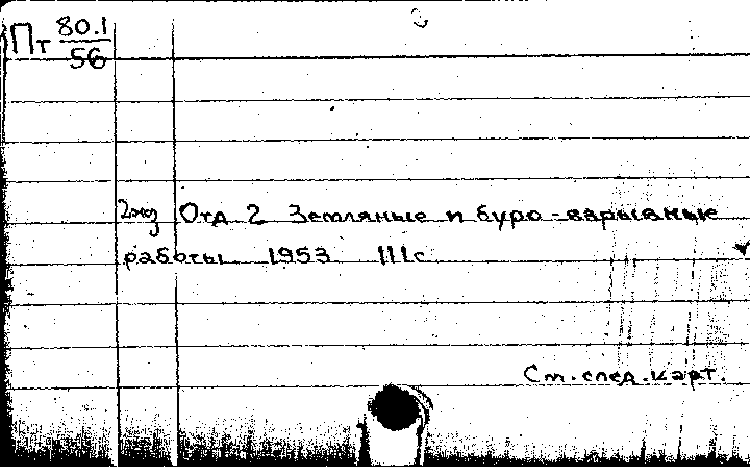 Пт 80.1
56
2экз Отд 2 Земляные и буро-взрывные
работы 1953 111с.
См. след. карт.